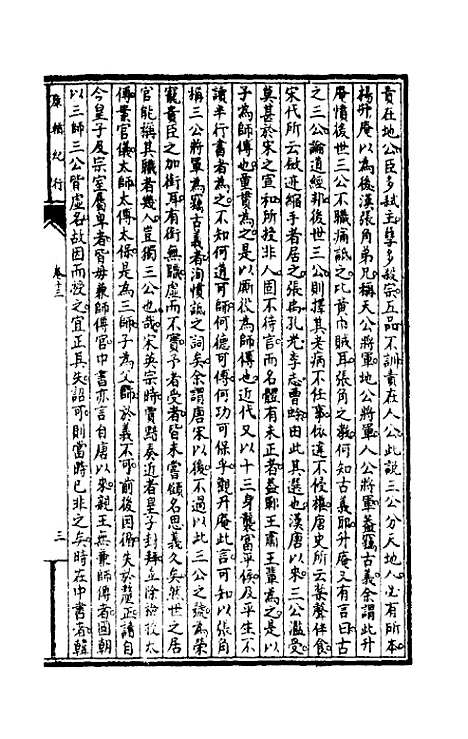 責在地公臣多弒主孽多殺宗五品不訓責在人公此説三公分天地人必有所本
楊升庵以為後漢張角弟兄稱天公將軍地公將軍人公將軍蓋竊古義余謂此升
庵憤後世三公不職痛詆之比黃巾賊耳張角之徼何知古義耶升庵又有言曰古
之三公論道經邦後世三公則擇其老病不任事依違不侵權唐史所云養聲伴食
宋代所云啟迹縮手者居之張禹孔光李志曹蜍由此其選也漢唐以來三公濫受
莫甚於宋之宣和所授非人固不待言而名體有未正者益耶王肅王輩為之是以
子為師傅也童貫為之是以廝役為師傅也近代又以十三身襲富平侯及平生不
讀半行書者為之不知何道可師何德可傅何功可保乎觀升庵此言可知以張角
稱三公將軍為竊古義者洵憤詆之詞矣余謂唐宋以後不過以此三公之號為榮
寵貴臣之加銜耳有銜無職虛而不實予者受者皆未嘗顧名思義久矣然世之居
官能稱其職者幾人豈獨三公也哉宋英宗時賈黯奏近者皇子封拜並除檢校太
傅案官儀太師太傅太保是為三師子為父師於義不可前後因循失於釐正請自
今皇子及宗室屬卑者皆毋兼師傅官中書亦言自唐以來親王無兼師傅者國朝
以三師三公皆虛名故因而授之宜正其失詔可則當時已非之矣時在中書者韓
原輶紀行
卷十三
三